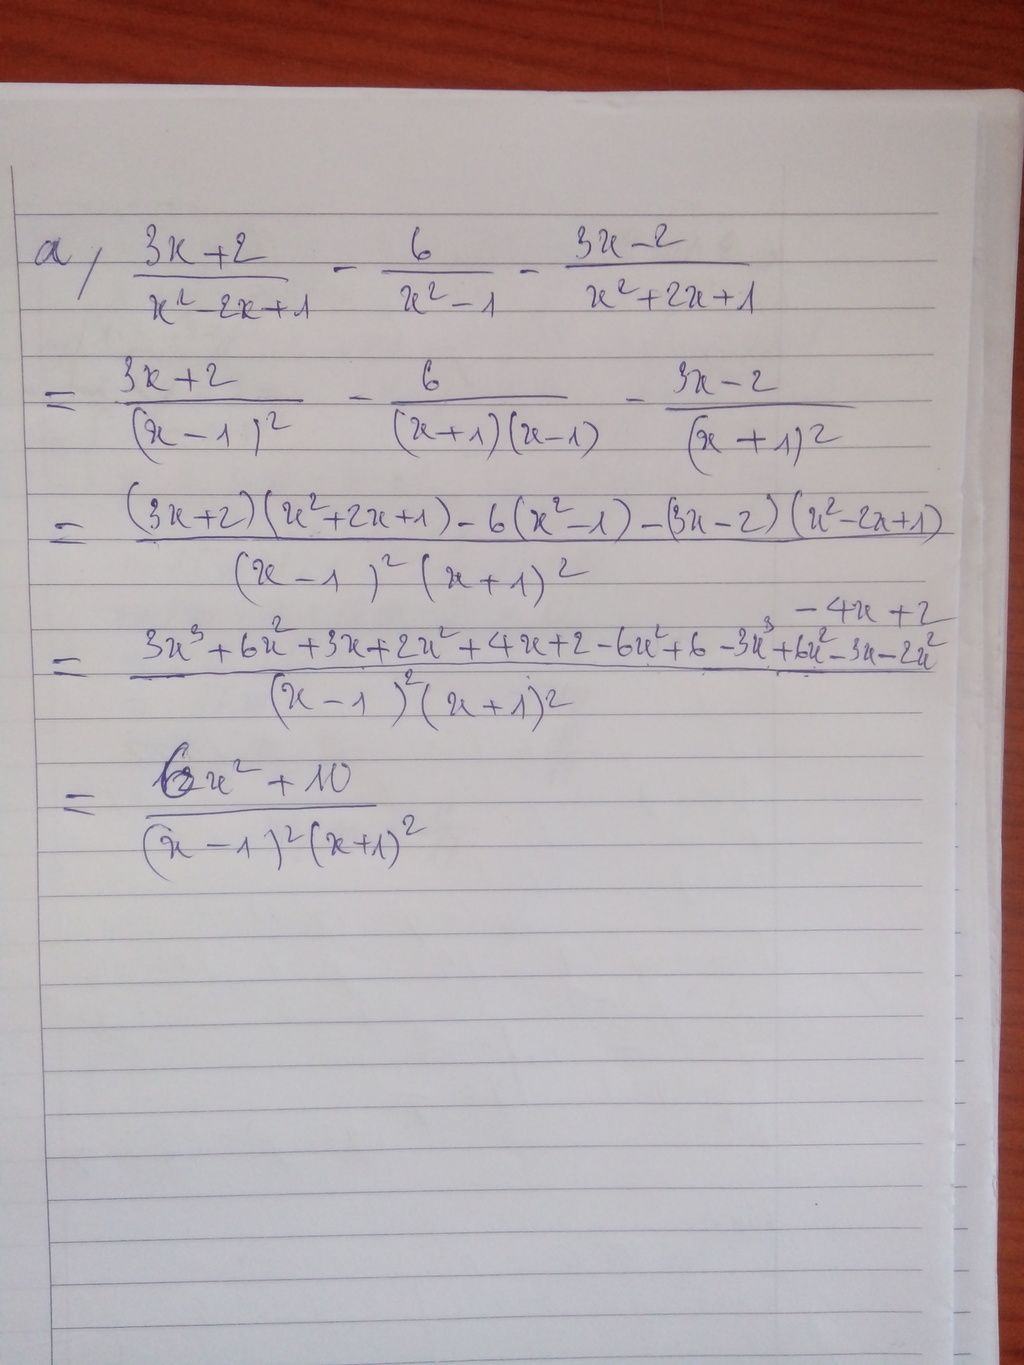 a, (3x+2)/(x²-2x+1) - 6/(x²-1) - (3x-2)/(x²+2x+1)
= (3x+2)/(x-1)² - 6/((x+1)(x-1)) - (3x-2)/(x+1)²
= ((3x+2)(x²+2x+1)-6(x²-1)-(3x-2)(x²-2x+1))/((x-1)²(x+1)²)
= (3x³+6x²+3x+2x²+4x+2-6x²+6-3x³+6x²-3x-2x²-4x+2)/((x-1)²(x+1)²)
= (x²+10)/((x-1)²(x+1)²)